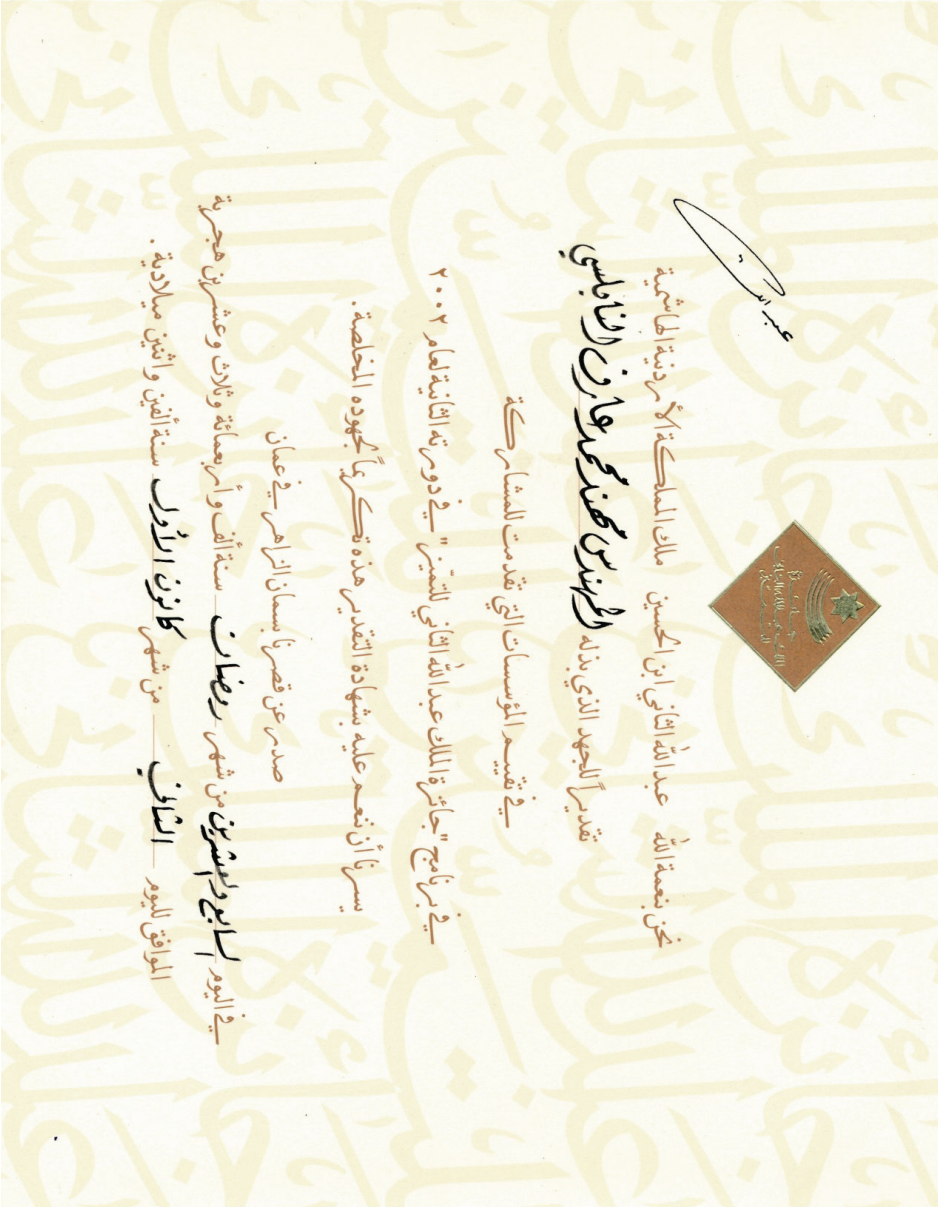 نحن بنعمة الله عبدالله الثاني ابن الحسين ملك المملكة الأردنية الهاشمية
تقديراً للجهد الذي بذله المهندس مهند محمد عارف النابلسي
في تقييم المؤسسات التي تقدمت للمشاركة
في برنامج "جائزة الملك عبدالله الثاني للتميّز" في دورته الثانية لعام ٢٠٠٢
يسرنا أن ننعم عليه بشهادة التقدير هذه تكريماً لجهوده المخلصة.
صدر عن قصرنا بسمان الزاهر في عمان
في اليوم السابع والعشرين من شهر رمضان سنة ألف وأربعمائة وثلاث وعشرين هجرية
الموافق لليوم الثاني من شهر كانون الأول سنة ألفين واثنين ميلادية.